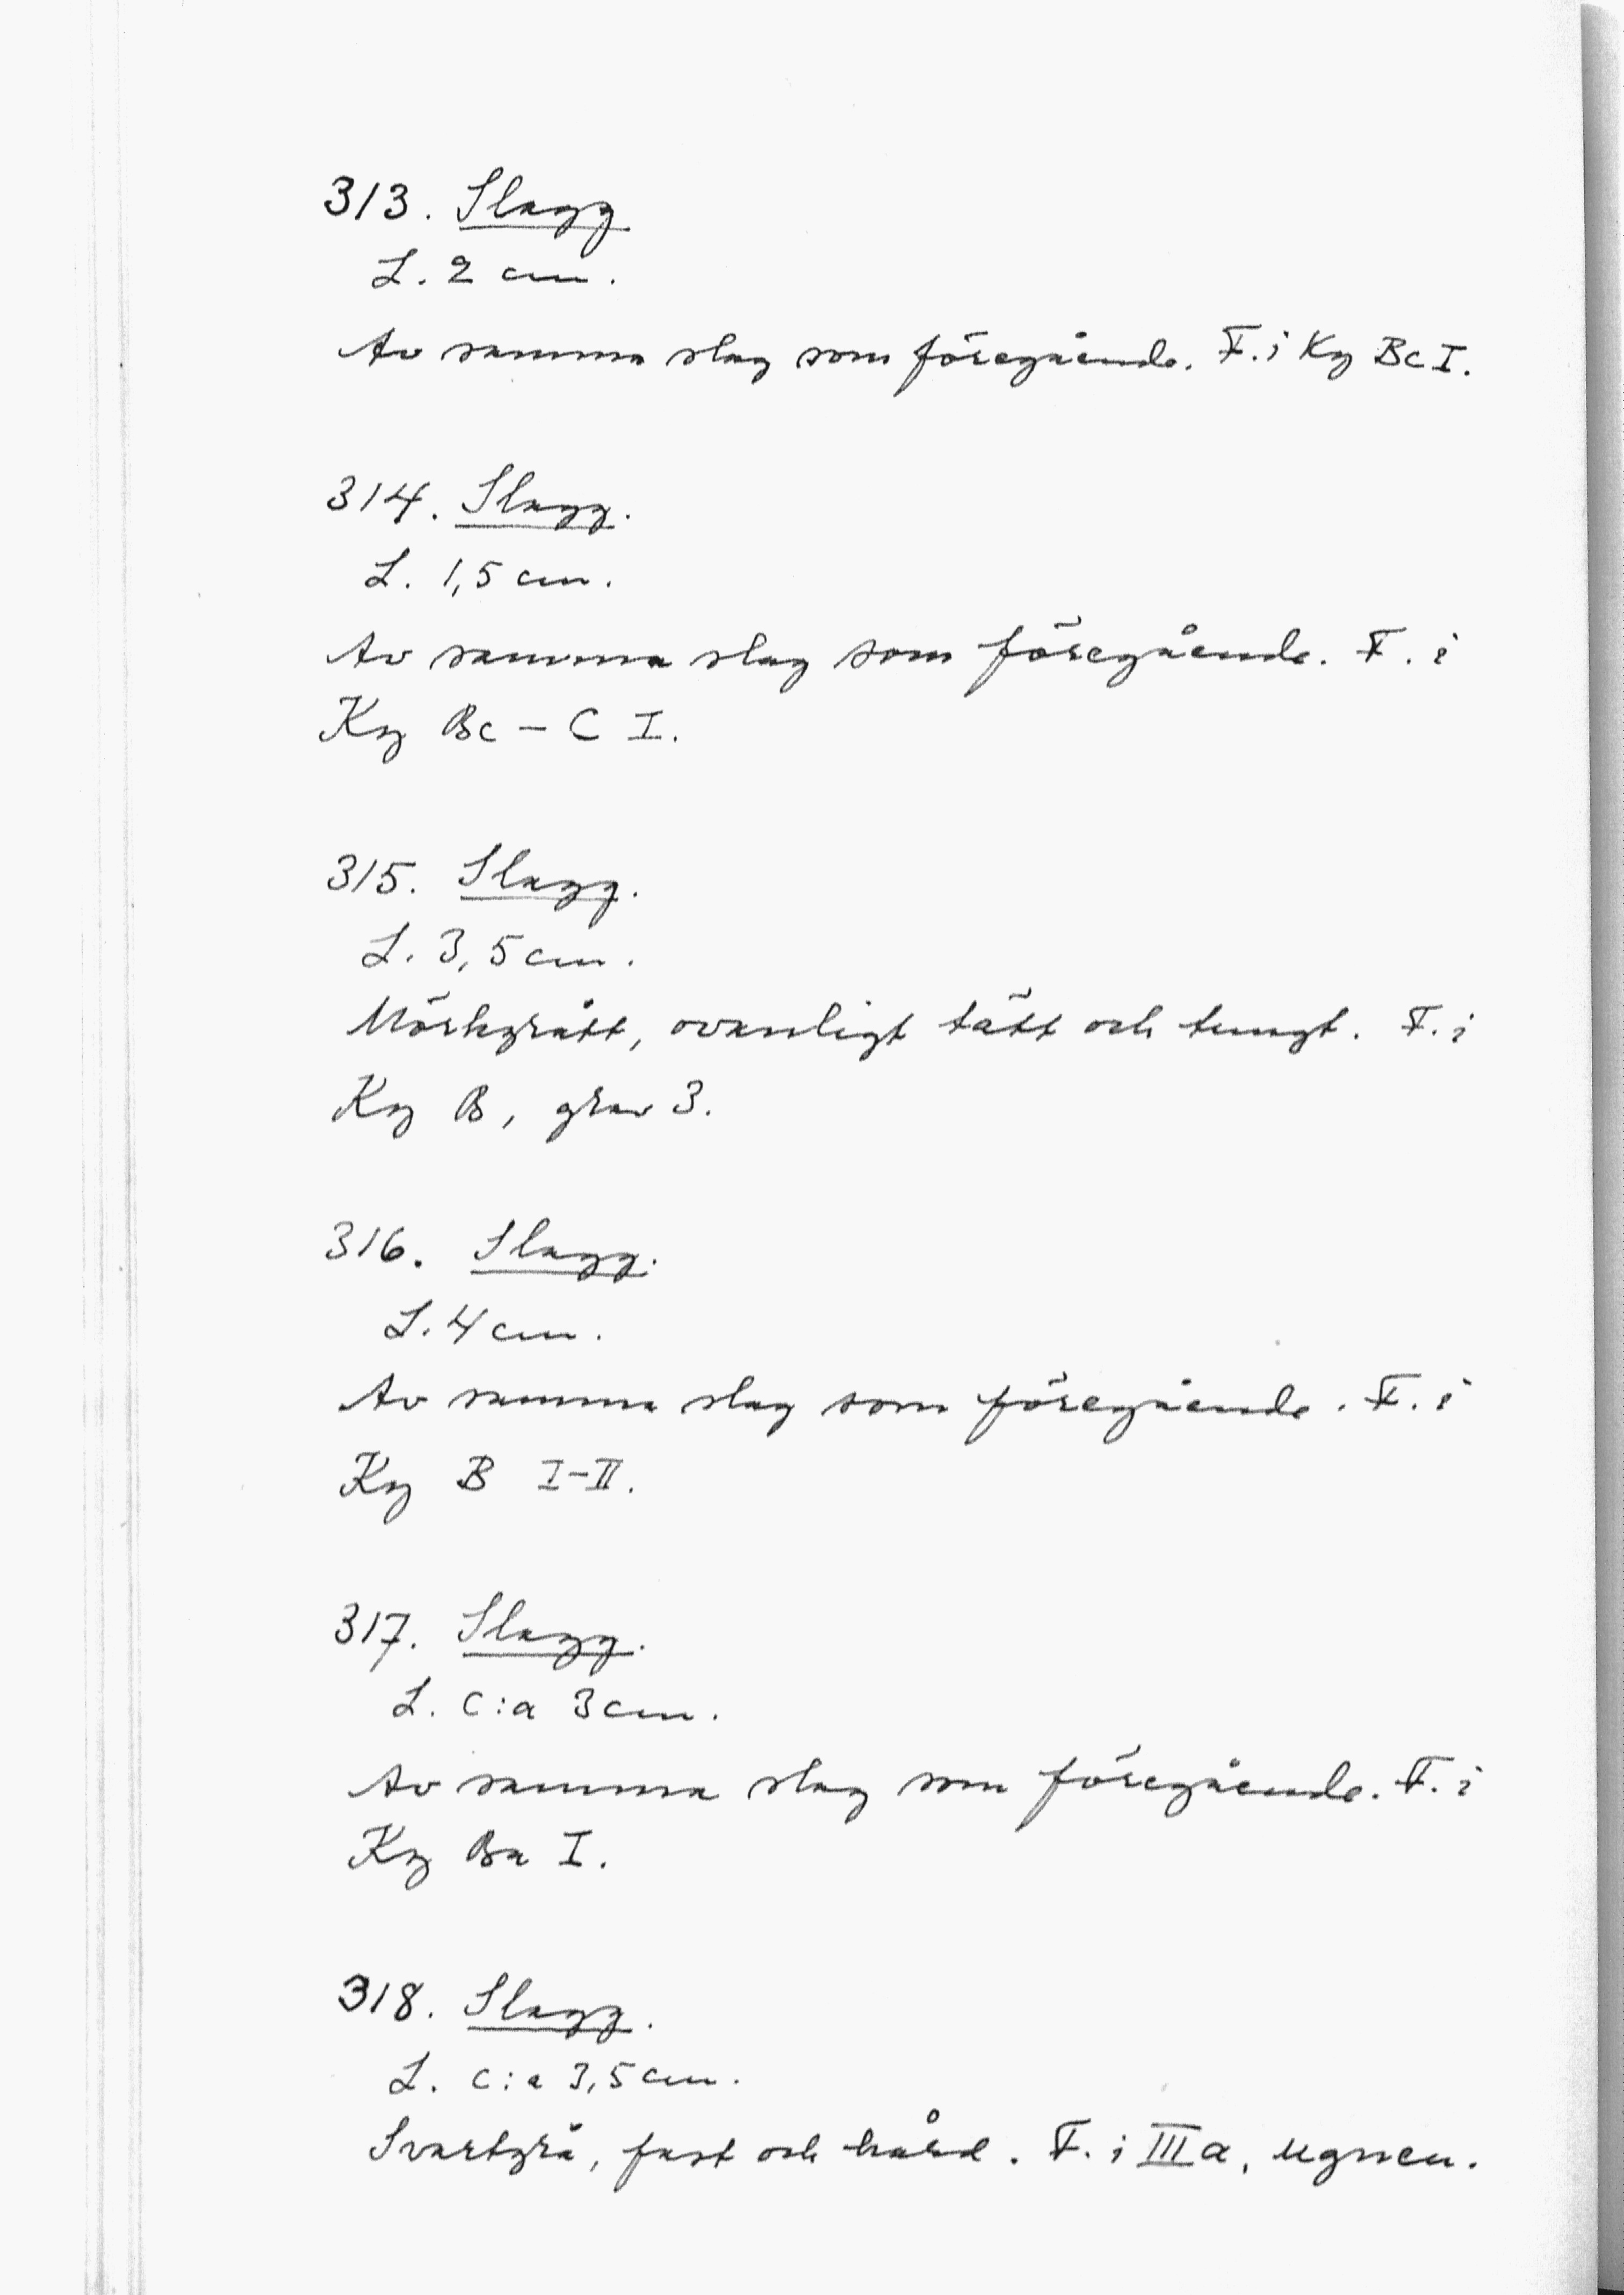 313. Slagg
L. 2 cm.
Av samma slag som föregående. F. i Kg Bc I.
314. Slagg.
L. 1,5 cm.
Av samma slag som föregående. F. i
Kg Bc – C I.
315. Slagg.
L. 3,5 cm.
Mörkgrått, ovanligt tätt och tungt. F. i
Kg B, grav 3.
316. Slagg.
L. 4 cm.
Av samma slag som föregående. F. i
Kg B I–II.
317. Slagg.
L. c:a 3 cm.
Av samma slag som föregående. F. i
Kg Ba I.
318. Slagg.
L. c:a 3,5 cm.
Svartgrå, fast och hård. F. i III a, ugnen.